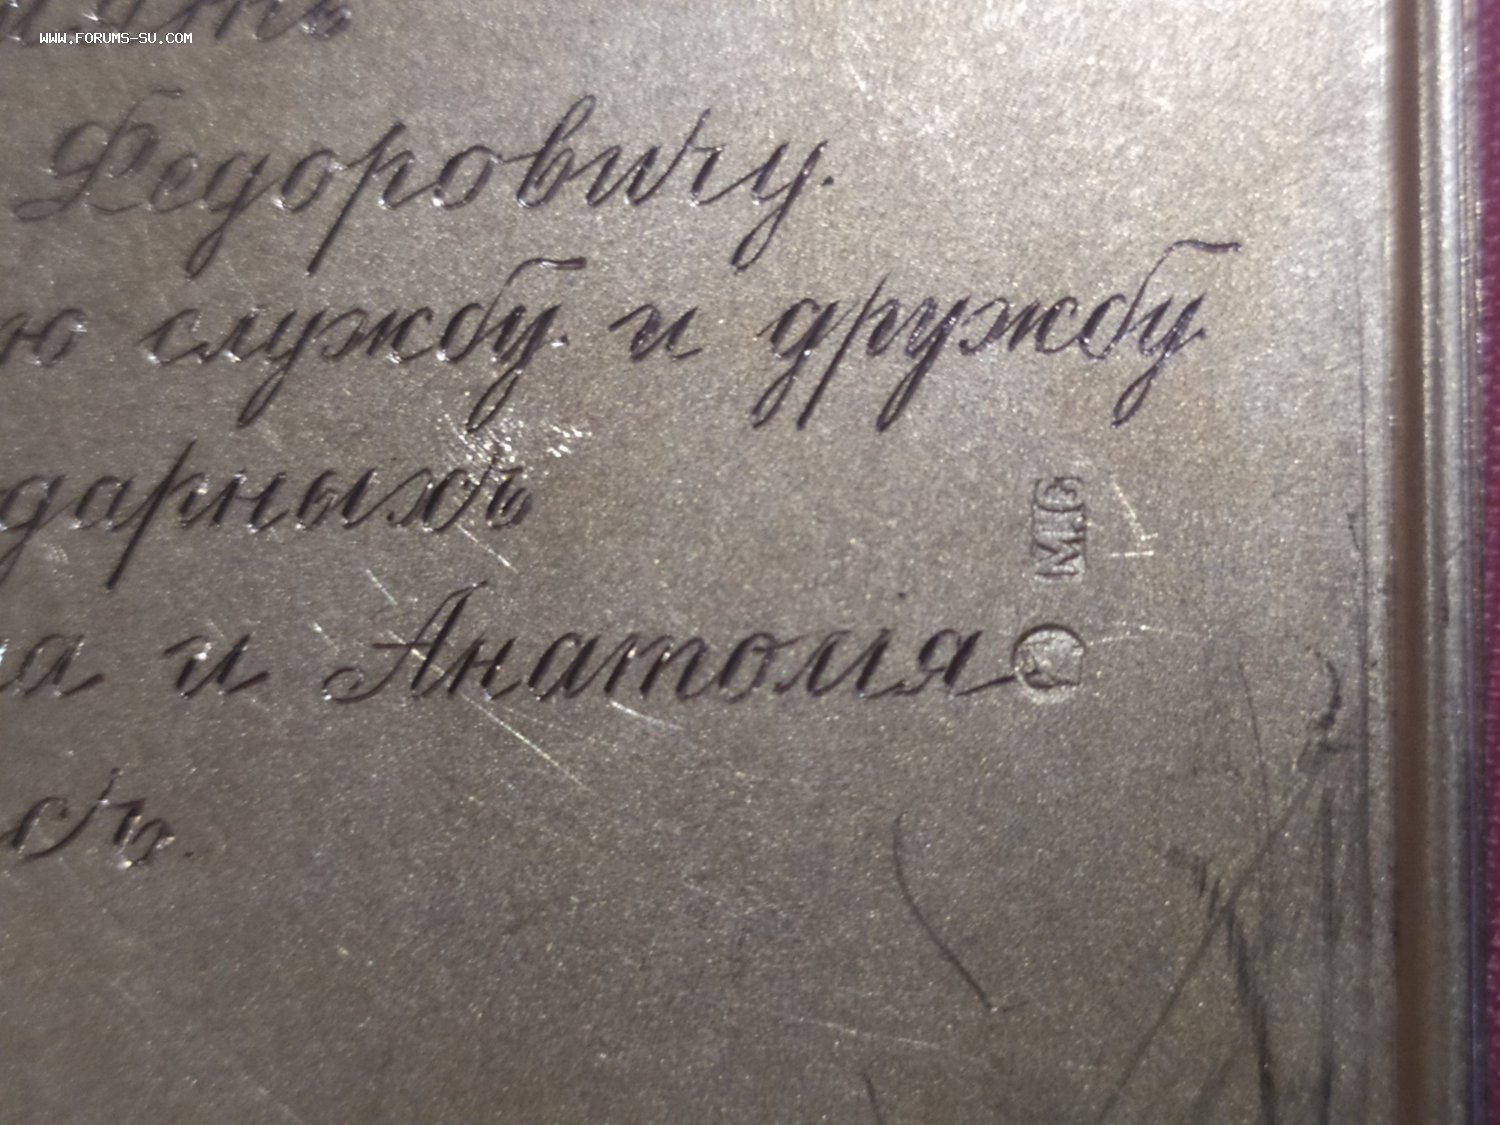 WWW.FORUMS-SU.COM
Федоровичу.
ю службу и дружбу
дарныхъ
а и Анатолiя
съ.
М.С